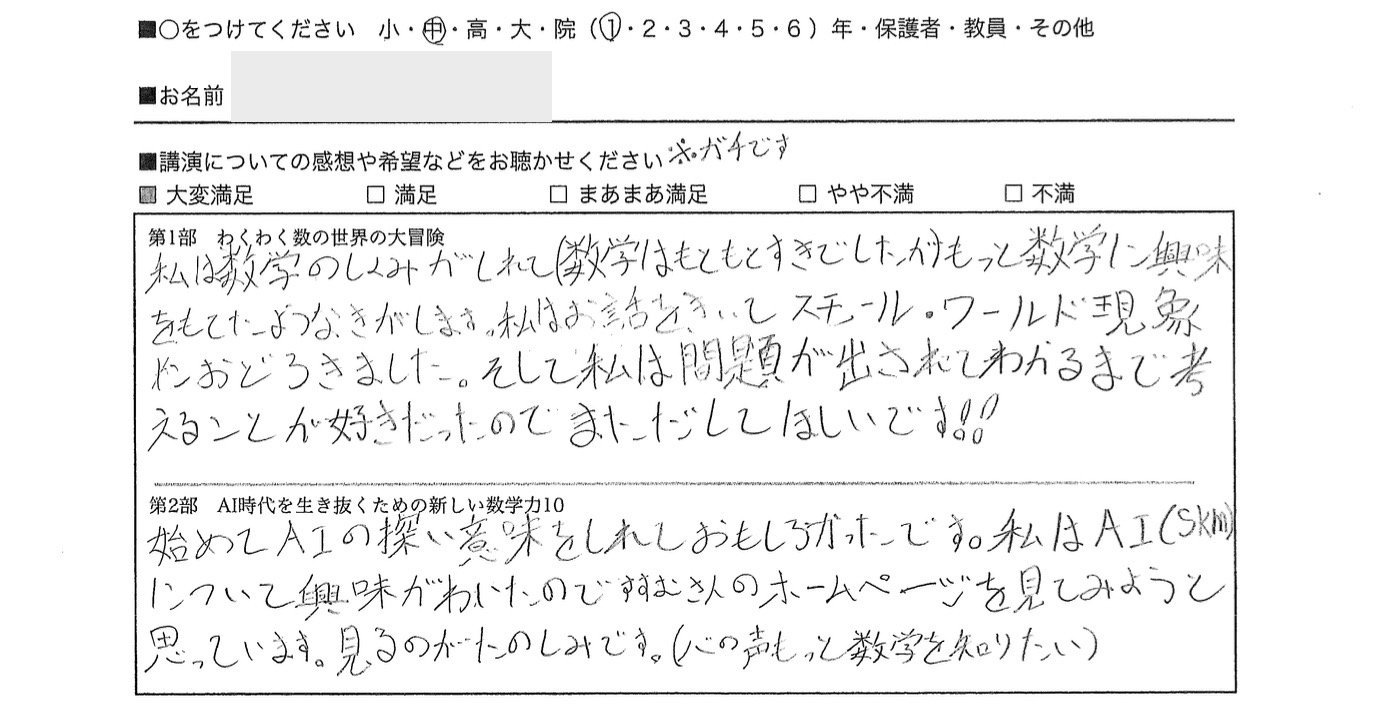 ■○をつけてください 小・中・高・大・院（1・2・3・4・5・6）年・保護者・教員・その他
■お名前
■講演についての感想や希望などをお聴かせください ※ガチです
■ 大変満足 □ 満足 □ まあまあ満足 □ やや不満 □ 不満
第1部 わくわく数の世界の大冒険
私は数学のしくみがしれて(数学はもともとすきでしたが)もっと数学に興味
をもてたようなきがします。私はお話をきいてスモール・ワールド現象
におどろきました。そして私は問題が出されてわかるまで考
えることが好きだったのでまただしてほしいです!!
第2部 AI時代を生き抜くための新しい数学力10
始めてAIの深い意味をしれておもしろかったです。私はAI(skm)
について興味がわいたのですすむさんのホームページを見てみようと
思っています。見るのがたのしみです。(心の声もっと数学を知りたい)